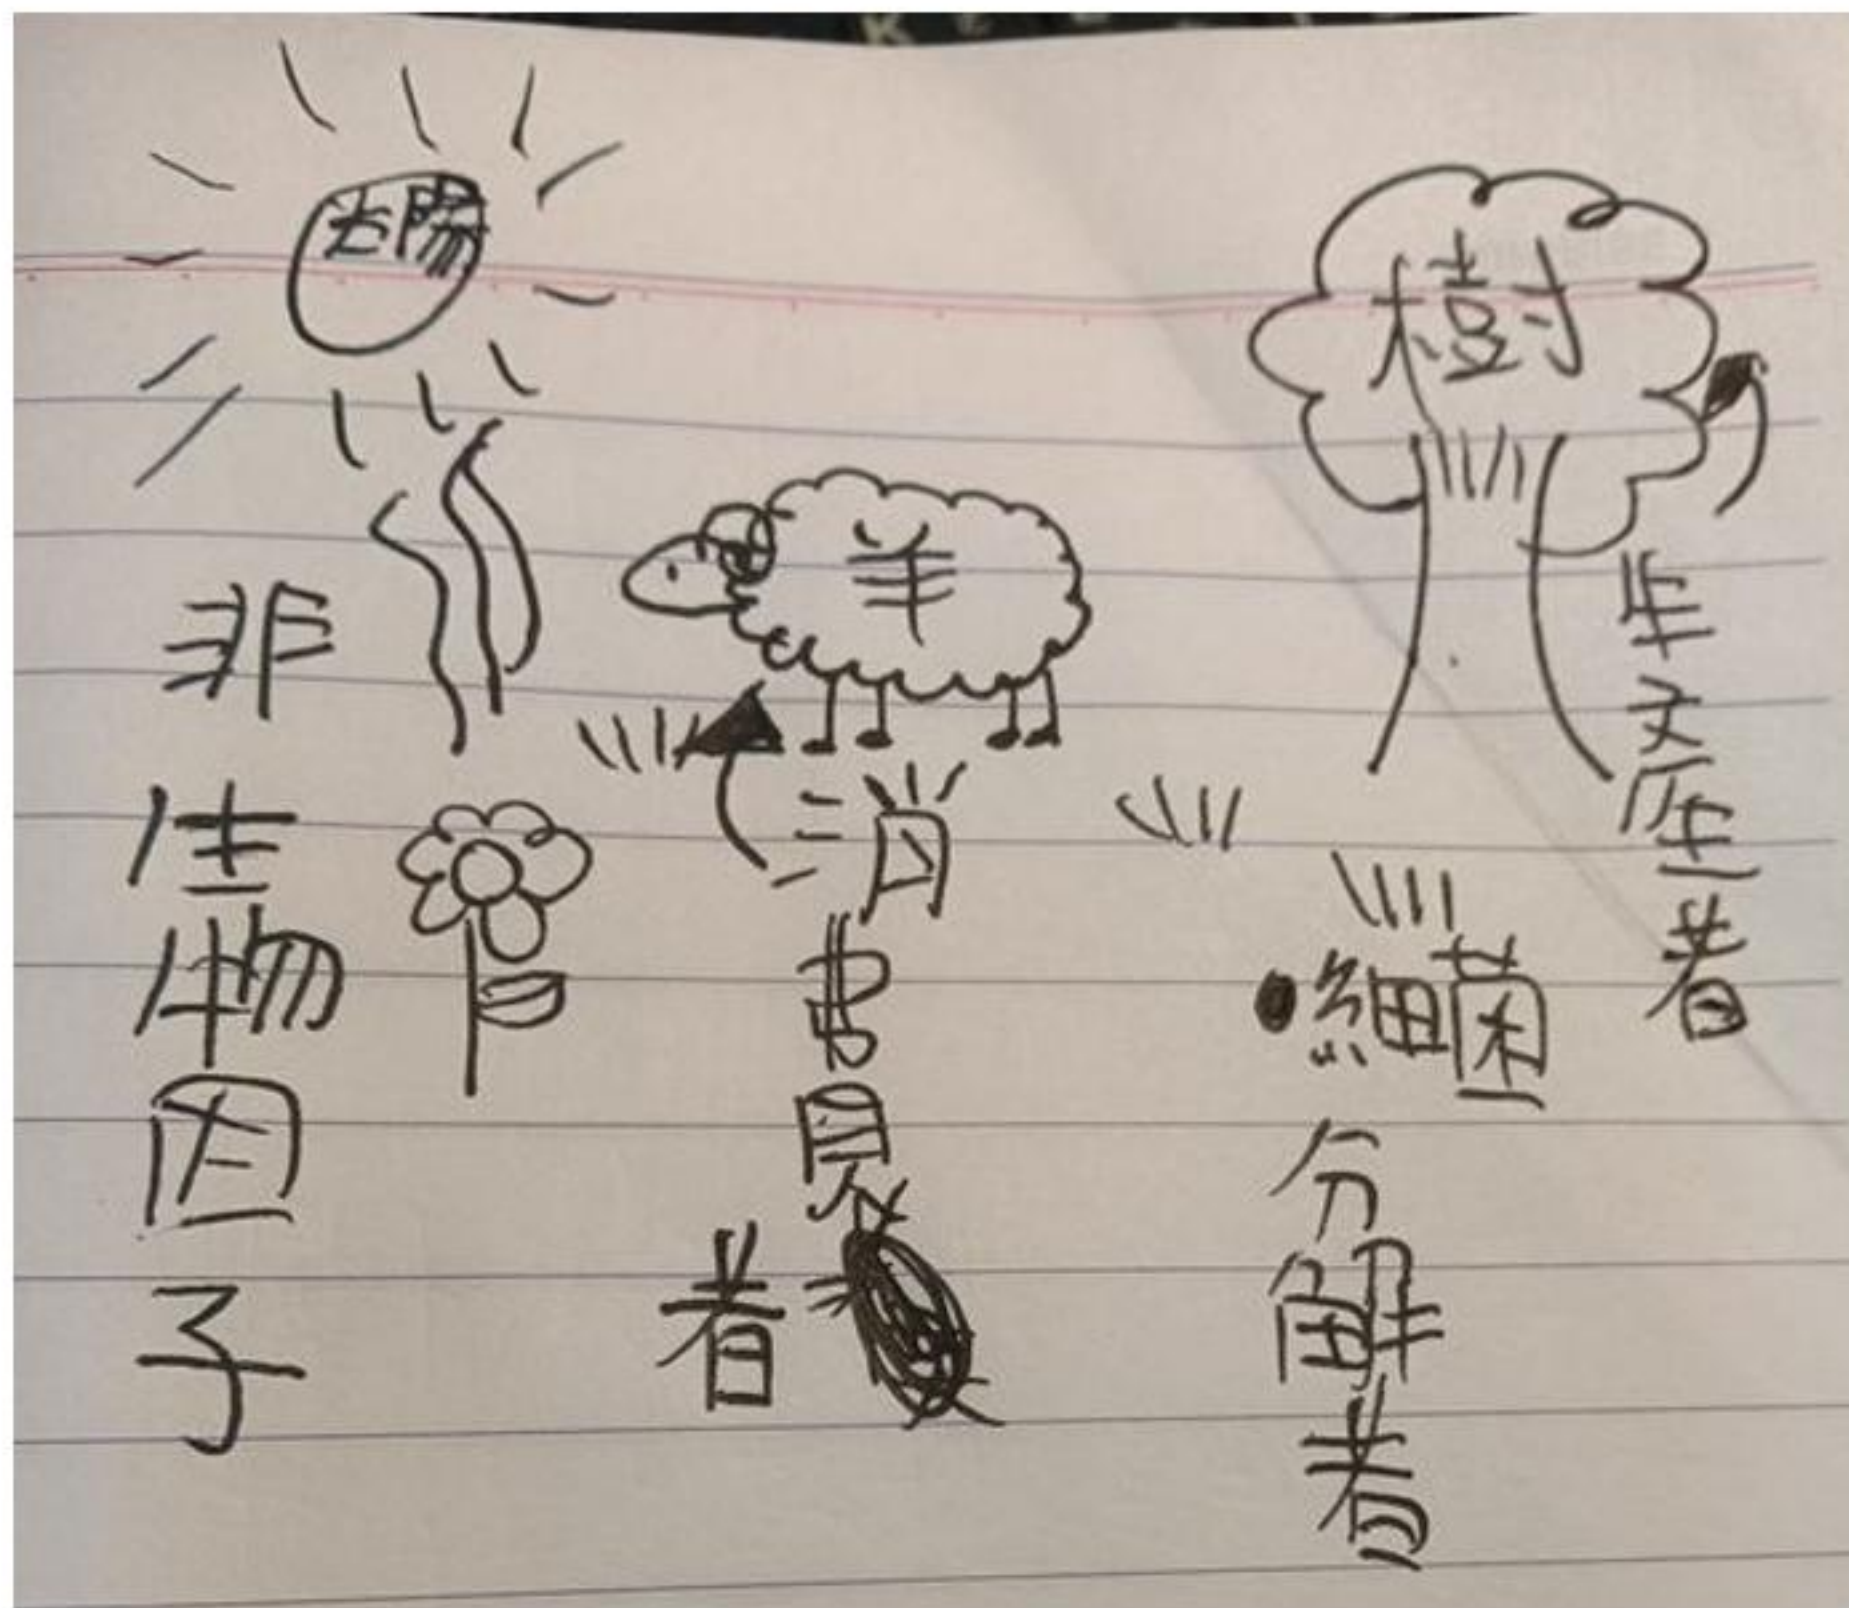 太陽
樹
羊
非生物因子
消費者
生產者
細菌
分解者